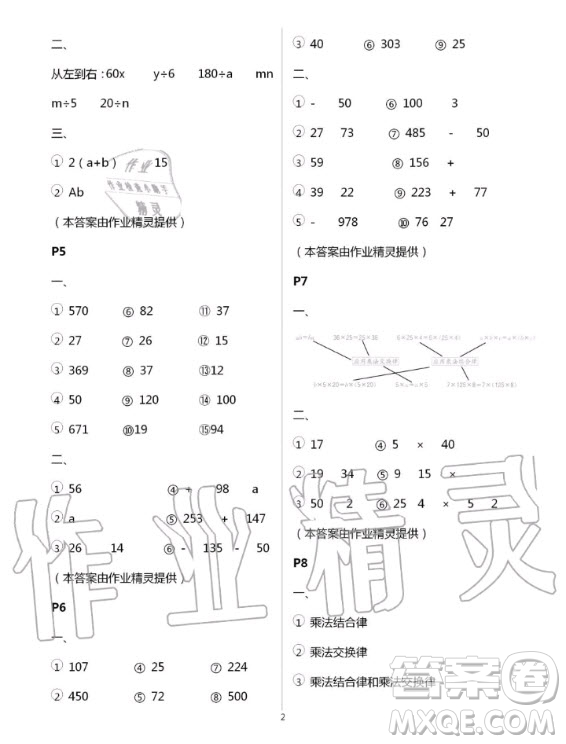 二、
从左到右：60x y÷6 180÷a mn
m÷5 20÷n
三、
① 2（a+b） 15
② Ab
（本答案由作业精灵提供）
P5
一、
① 570 ⑥ 82 ⑪ 37
② 27 ⑦ 26 ⑫ 15
③ 369 ⑧ 37 ⑬ 12
④ 50 ⑨ 120 ⑭ 100
⑤ 671 ⑩19 ⑮94
二、
① 56 ④ + 98 a
② a ⑤ 253 + 147
③ 26 14 ⑥ - 135 - 50
（本答案由作业精灵提供）
P6
一、
① 107 ④ 25 ⑦ 224
② 450 ⑤ 72 ⑧ 500
③ 40 ⑥ 303 ⑨ 25
二、
① - 50 ⑥ 100 3
② 27 73 ⑦ 485 - 50
③ 59 ⑧ 156 +
④ 39 22 ⑨ 223 + 77
⑤ - 978 ⑩ 76 27
（本答案由作业精灵提供）
P7
一、
应用乘法交换律 应用乘法结合律
二、
① 17 ④ 5 × 40
② 19 34 ⑤ 9 15 ×
③ 50 2 ⑥ 25 4 × 5 2
（本答案由作业精灵提供）
P8
一、
① 乘法结合律
② 乘法交换律
③ 乘法结合律和乘法交换律
2
作业精灵
答案圈
MXQE.COM